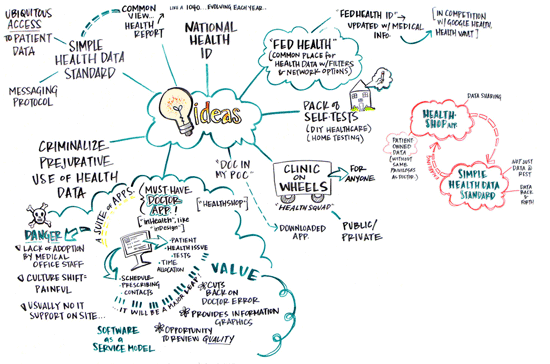 UBIQUITOUS
ACCESS
TO PATIENT
DATA
SIMPLE
HEALTH DATA
STANDARD
MESSAGING
PROTOCOL
COMMON
VIEW...
HEALTH
REPORT
LIKE A 1040... EVOLVING EACH YEAR...
NATIONAL
HEALTH
ID
"FED HEALTH"
(COMMON PLACE for
HEALTH DATA W/FILTERS
& NETWORK OPTIONS)
"FEDHEALTH ID"
UPDATED W/ MEDICAL
INFO.
[IN COMPETITION
W/ GOOGLE HEALTH,
HEALTH VAULT]
ideas
PACK of
SELF TESTS
(DIY HEALTHCARE)
(HOME TESTING)
CRIMINALIZE
PREJURATIVE
USE of HEALTH
DATA
"DOC IN
MY POC"
CLINIC
ON
WHEELS
"HEALTH SQUAD"
FOR
ANYONE
DOWNLOADED
APP.
PUBLIC/
PRIVATE
DATA SHARING
HEALTH-
SHOP APP
PATIENT
OWNED
DATA
(WITHOUT
SAME
PRIVILEGES
AS DOCTOR)
SIMPLE
HEALTH DATA
STANDARD
NOT JUST
DATA @
REST
DATA
BACK &
FORTH
DANGER
LACK of ADOPTION
BY MEDICAL
OFFICE STAFF
CULTURE SHIFT =
PAINFUL
USUALLY NO IT
SUPPORT ON SITE...
A SUITE of APPS
MUST HAVE
DOCTOR
APP!
["inHealth", like
"inDesign"]
[HEALTHSHOP]
PATIENT
HEALTH ISSUE
TESTS
TIME
ALLOCATION
SCHEDULE
PRESCRIBING
CONTACTS
IT WILL BE A MAJOR LEAP!
VALUE
CUTS
BACK ON
DOCTOR ERROR
PROVIDES INFORMATION
GRAPHICS
OPPORTUNITY
TO REVIEW QUALITY
SOFTWARE
as a
SERVICE MODEL